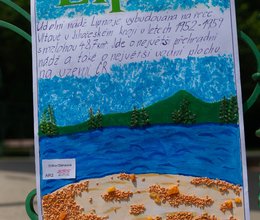 Lip
Údolní nádrž Lipno je vybudovaná na řece
Vltavě v Jihočeském kraji v letech 1952-1959
s rozlohou 48,7 km². Jde o největší přehradní
nádrž a také o největší vodní plochu
na území ČR